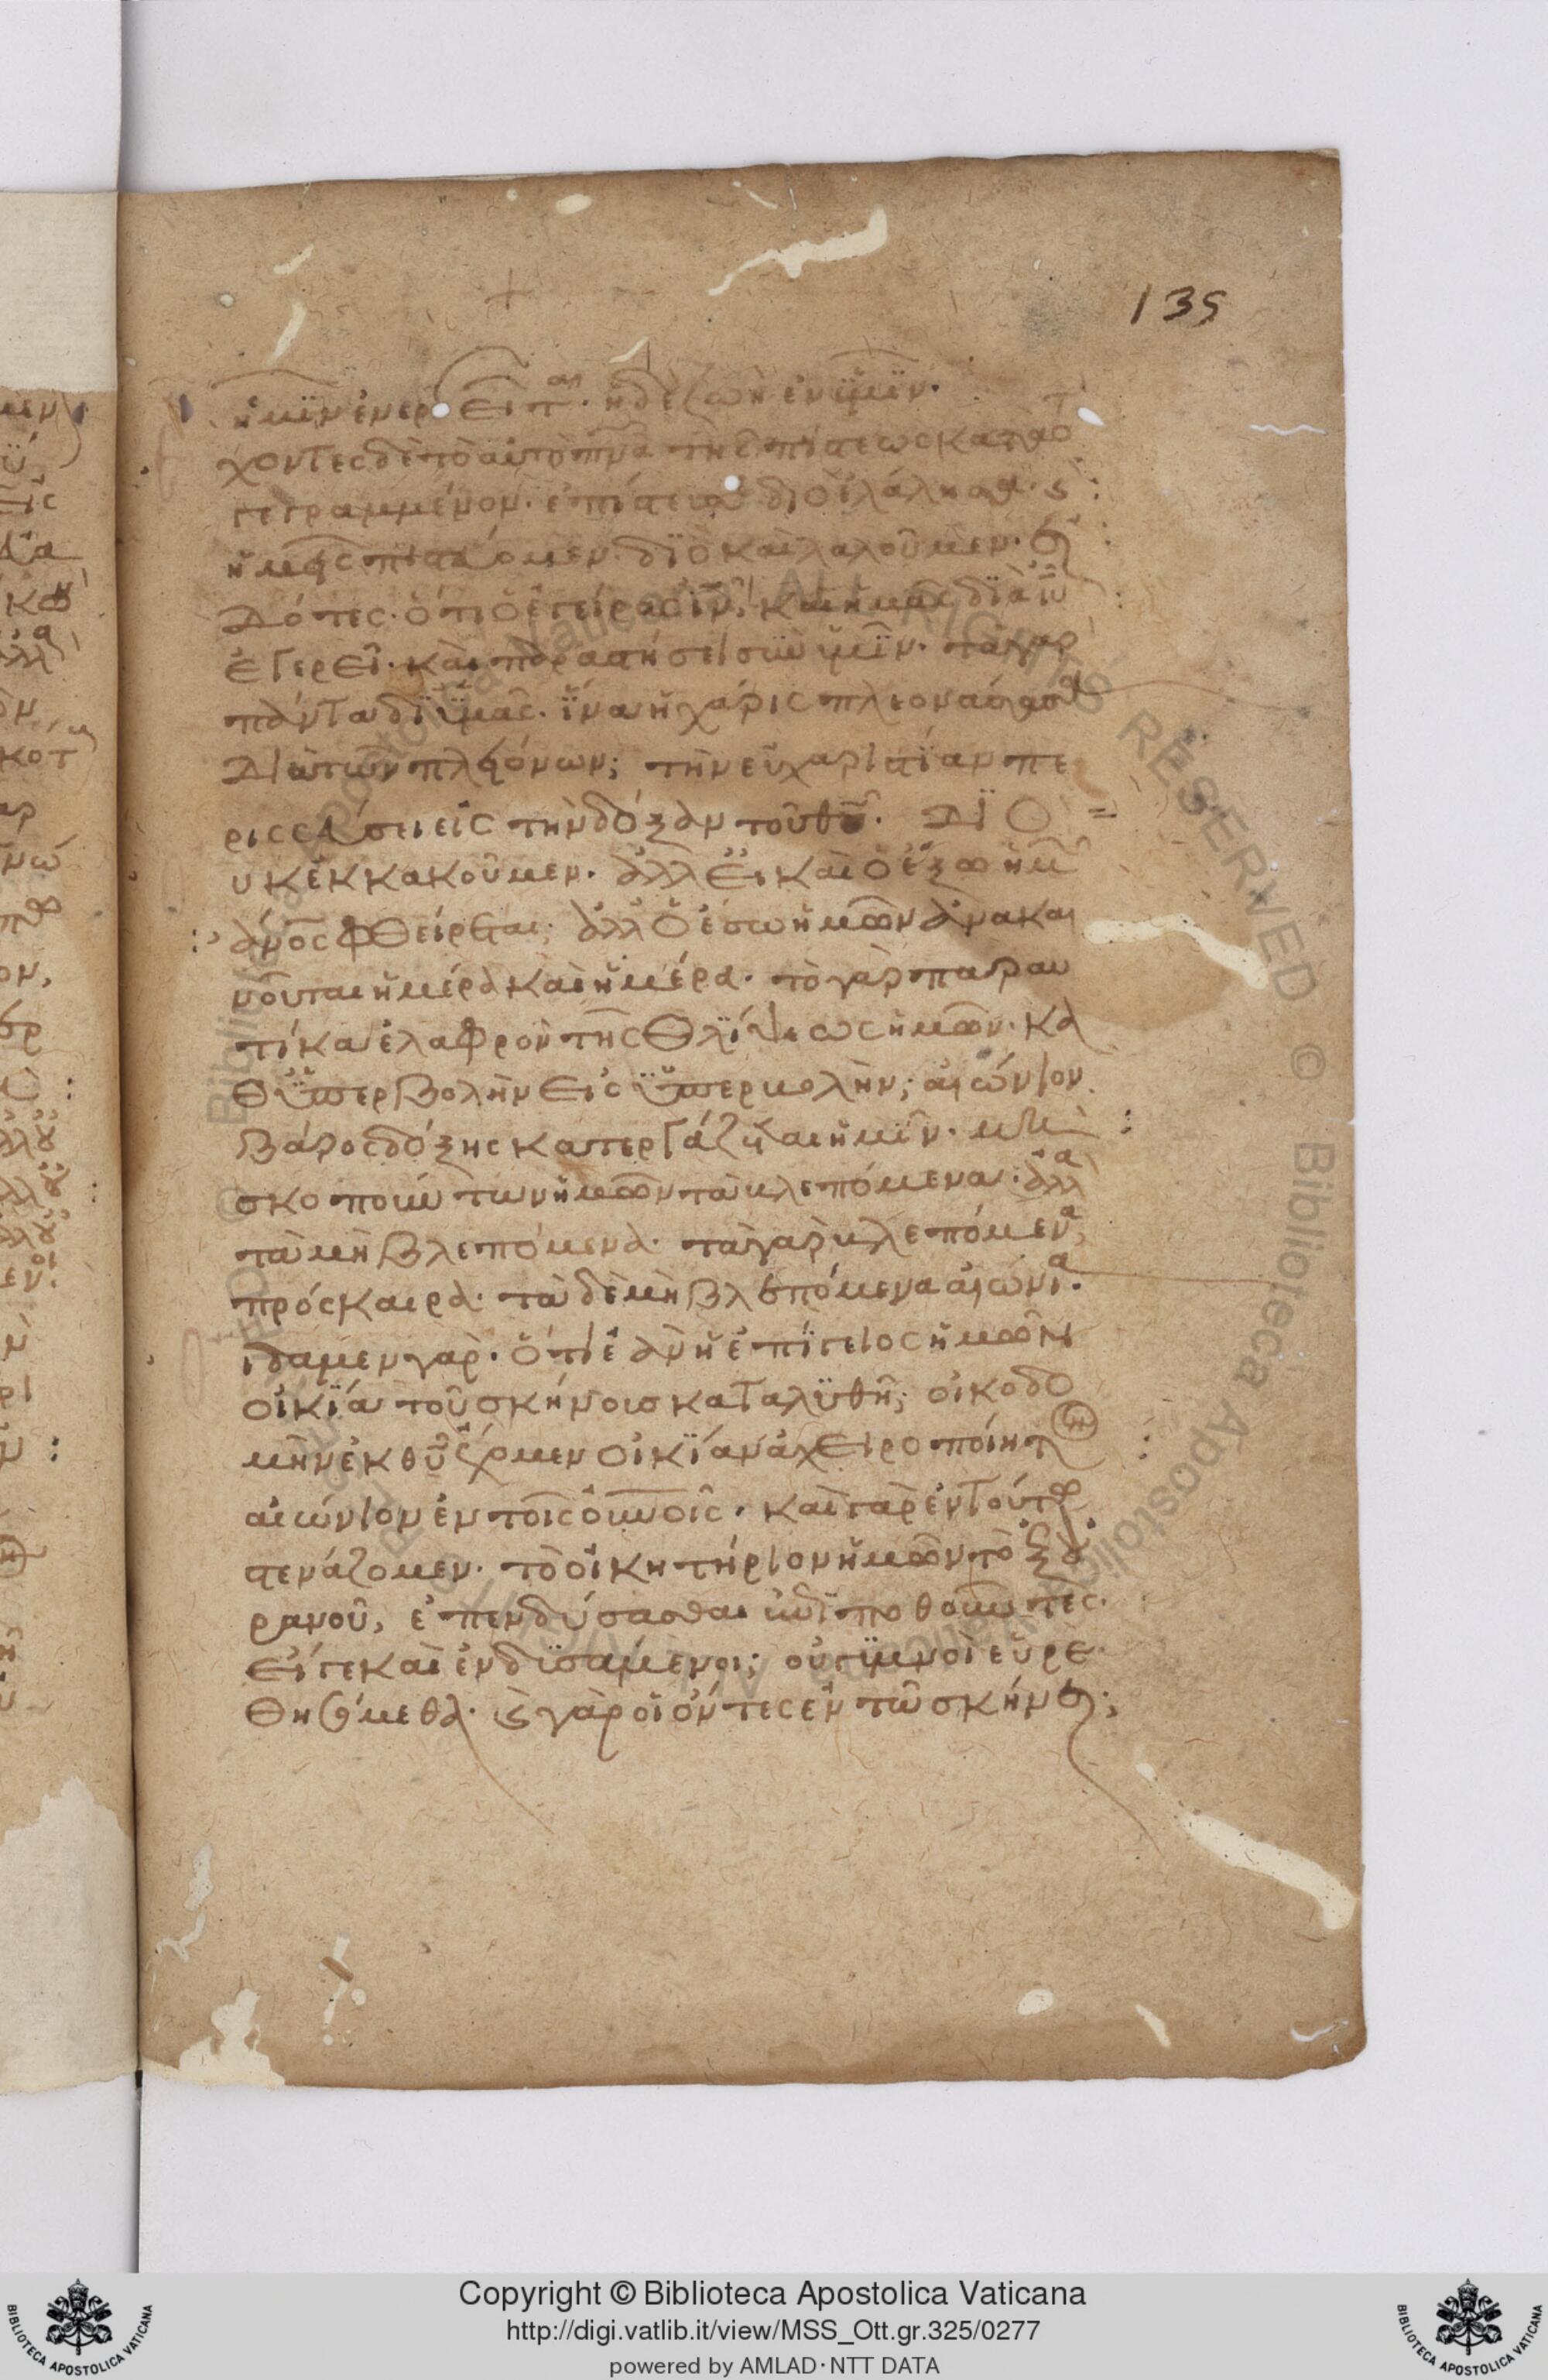 135
ἡμῖν ἐνεργεῖται. ἡ δὲ ζωὴ ἐν ὑμῖν.
χοντες δὲ τὸ αὐτὸ πνα τῆς πίστεως κατὰ τὸ
γεγραμμένον. ἐπίστευσα διὸ ἐλάλησα. καὶ
ἡμεῖς πιστεύομεν. διὸ καὶ λαλοῦμεν. εἰ
δότες. ὅτι ὁ ἐγείρας ιν, καὶ ἡμᾶς διὰ ιυ
ἐγερεῖ. καὶ παραστήσει σὺν ὑμῖν. τὰ γὰρ
πάντα δι ὑμᾶς. ἵνα ἡ χάρις πλεονάσασα
διὰ τῶν πλειόνων; τὴν εὐχαριστίαν πε
ρισσεύσει εἰς τὴν δόξαν τοῦ θυ. Διὸ ο
υκ ἐκκακοῦμεν. ἀλλ εἰ καὶ ὁ ἔξω ἡμῶν
ἀνος φθείρεται; ἀλλ ὁ ἔσω ἡμῶν ἀνακαι
νοῦται ἡμέρα καὶ ἡμέρα. τὸ γὰρ παραυ
τίκα ἐλαφρὸν τῆς θλίψεως ἡμῶν. κα
θ ὑπερβολὴν εἰς ὑπερβολὴν; αἰώνιον
βάρος δόξης κατεργάζεται ἡμῖν. μὴ
σκοπούντων ἡμῶν τὰ βλεπόμενα. ἀλλὰ
τὰ μὴ βλεπόμενα. τὰ γὰρ βλεπόμενα,
πρόσκαιρα. τὰ δὲ μὴ βλεπόμενα αἰώνια.
ιδαμεν γὰρ. ὅτι ἐὰν ἡ ἐπίγειος ἡμῶν
οἰκία τοῦ σκήνοις καταλυθῆ; οἰκοδο
μὴν ἐκ θυ ἔχομεν οἰκίαν ἀχειροποίητον
αἰώνιον ἐν τοῖς οὐνοῖς. καὶ γὰρ ἐν τούτω
στενάζομεν. τὸ οἰκητήριον ἡμῶν τὸ ἐξ οὐ
ρανοῦ, ἐπενδύσασθαι ἐπιποθοῦντες.
εἴγε καὶ ἐνδυσάμενοι; οὐ γυμνοὶ εὑρε
θησόμεθα. καὶ γὰρ οἱ ὄντες ἐν τῶ σκήνει;
Copyright © Biblioteca Apostolica Vaticana
http://digi.vatlib.it/view/MSS_Ott.gr.325/0277
powered by AMLAD·NTT DATA